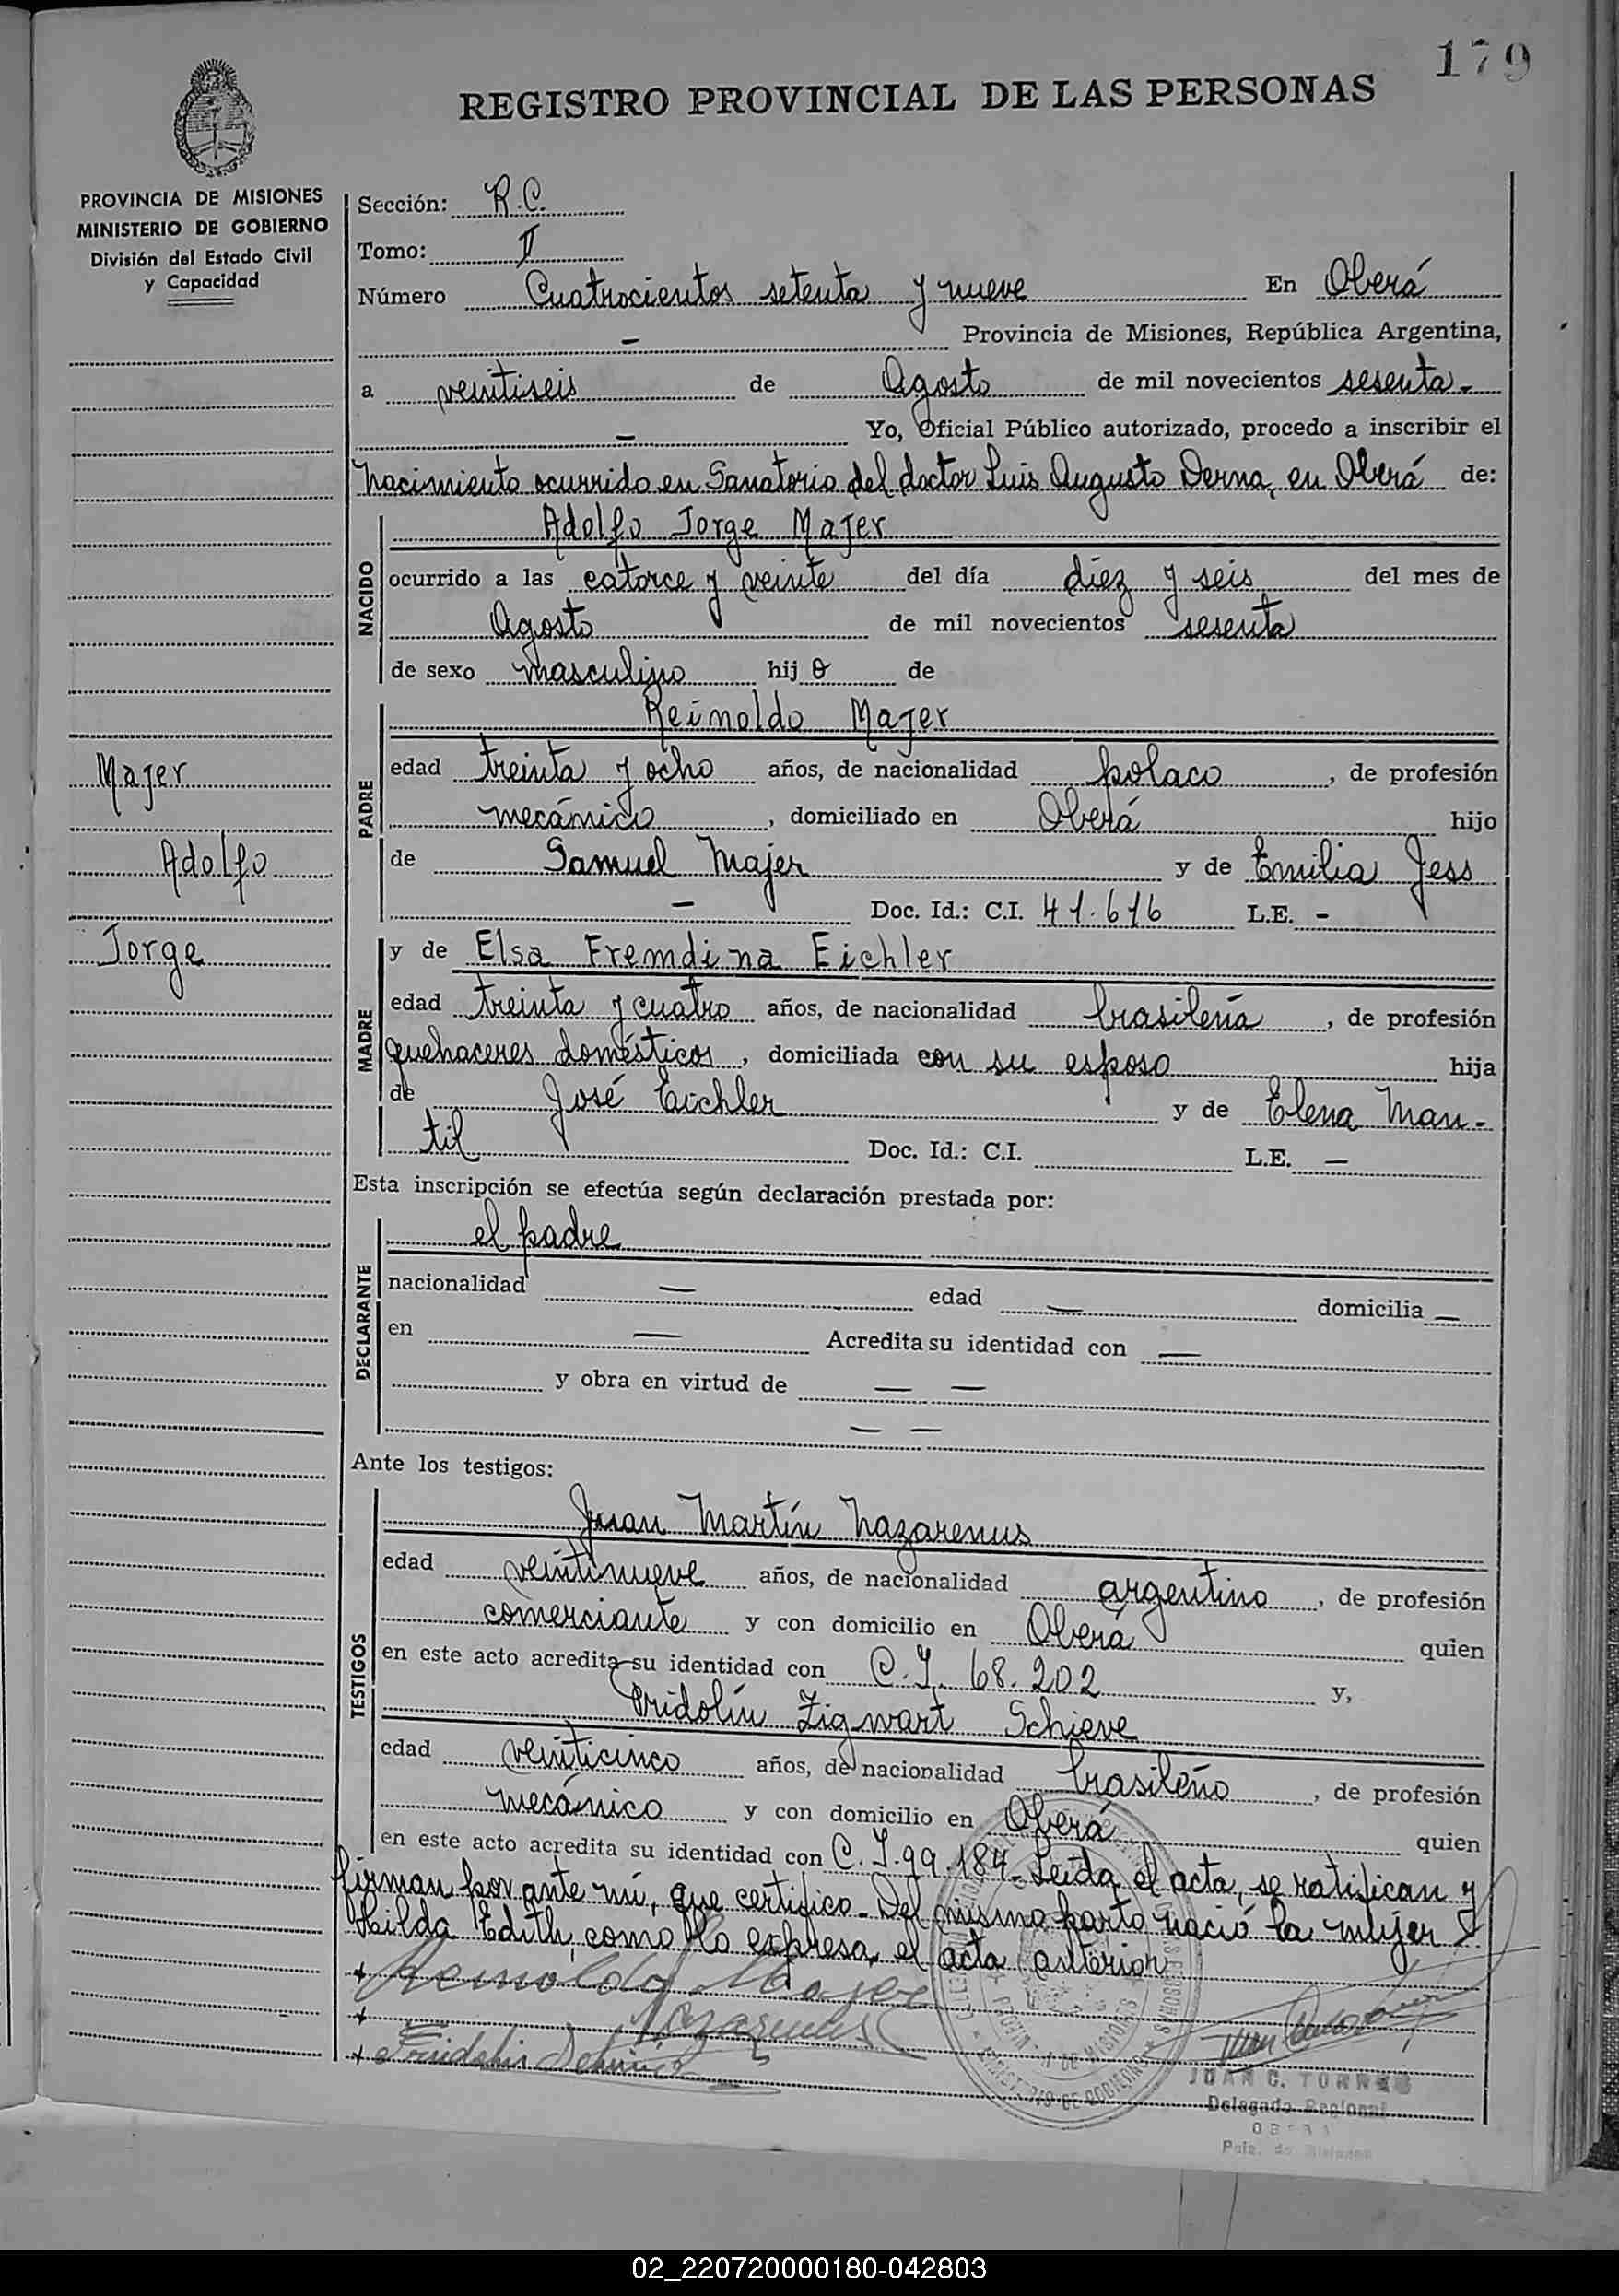 179
REGISTRO PROVINCIAL DE LAS PERSONAS
PROVINCIA DE MISIONES
MINISTERIO DE GOBIERNO
División del Estado Civil
y Capacidad
Sección: R.C.
Tomo: II
Número Cuatrocientos setenta y nueve En Oberá
— Provincia de Misiones, República Argentina,
a veintiseis de Agosto de mil novecientos sesenta-
— Yo, Oficial Público autorizado, procedo a inscribir el
nacimiento ocurrido en Sanatorio del doctor Luis Augusto Derna, en Oberá de:
NACIDO
Adolfo Jorge Majer
ocurrido a las catorce y veinte del día diez y seis del mes de
Agosto de mil novecientos sesenta
de sexo masculino hijo de
PADRE
Reinoldo Majer
Majer
edad treinta y ocho años, de nacionalidad polaco, de profesión
mecánico, domiciliado en Oberá hijo
Adolfo
de Samuel Majer y de Emilia Jess
— Doc. Id.: C.I. 41.616 L.E. -
Jorge
MADRE
y de Elsa Fremdina Eichler
edad treinta y cuatro años, de nacionalidad brasileña, de profesión
quehaceres domésticos, domiciliada con su esposo hija
de José Eichler y de Elena Man-
til Doc. Id.: C.I. L.E. —
Esta inscripción se efectúa según declaración prestada por:
DECLARANTE
el padre
nacionalidad — edad — domicilia —
en — Acredita su identidad con —
y obra en virtud de — —
— —
Ante los testigos:
TESTIGOS
Juan Martín Nazarenus
edad veintinueve años, de nacionalidad argentino, de profesión
comerciante y con domicilio en Oberá quien
en este acto acredita su identidad con C.I. 68.202 y,
Fridolín Zigwart Schieve
edad veinticinco años, de nacionalidad brasileño, de profesión
mecánico y con domicilio en Oberá quien
en este acto acredita su identidad con C.I. 99.184. Leida el acta, se ratifican y
firman por ante mí, que certifico. Del mismo parto nació la mujer
Hilda Edith, como lo expresa el acta anterior
Reinoldo Majer
Nazarenus
JUAN C. TORRES
Delegado Regional
OBERA
02_220720000180-042803